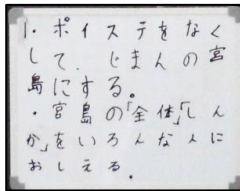 1. ポイステをなく
して、じまんの宮
島にする。
・宮島の「全体」「しん
か」をいろんな人に
おしえる。